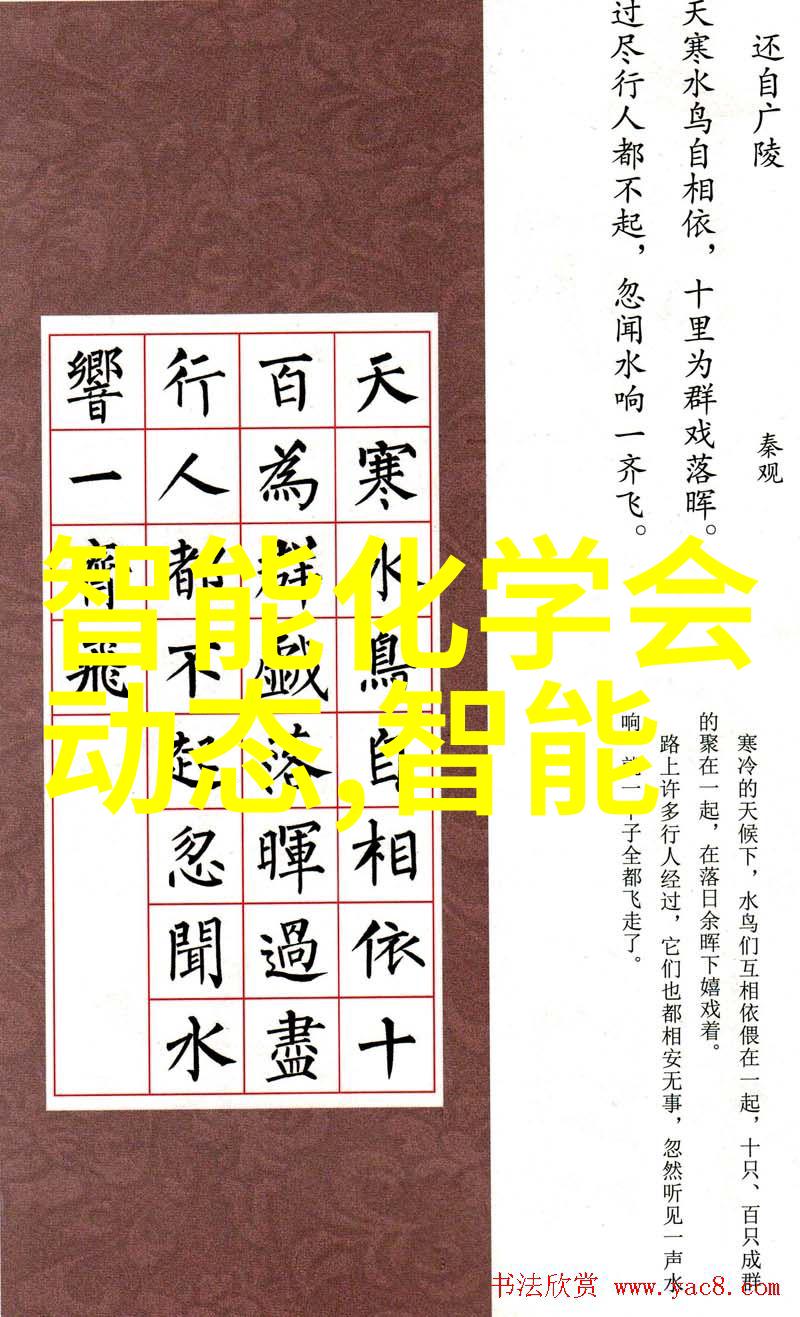 还自广陵
秦观
天寒水鸟自相依，十里为群戏落晖。
过尽行人都不起，忽闻水响一齐飞。
天寒水鳥自相依十
百為群戲落暉過盡
行人都不起忽聞水
響一齊飛
智能化学会
动态,智能
寒冷的天候下，水鸟们互相依偎在一起，十只、百只成群
的聚在一起，在落日余晖下嬉戏着。
路上许多行人经过，它们也都相安无事，忽然听见一声水
响 一 子全都飞走了。
书法欣赏 www.yac8.com